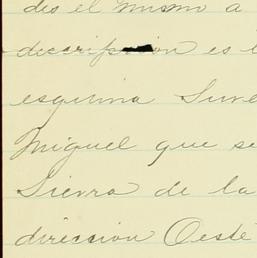 des el mismo a
descripción es
esquina
Miguel que se
Sierra de la
dirección Oeste